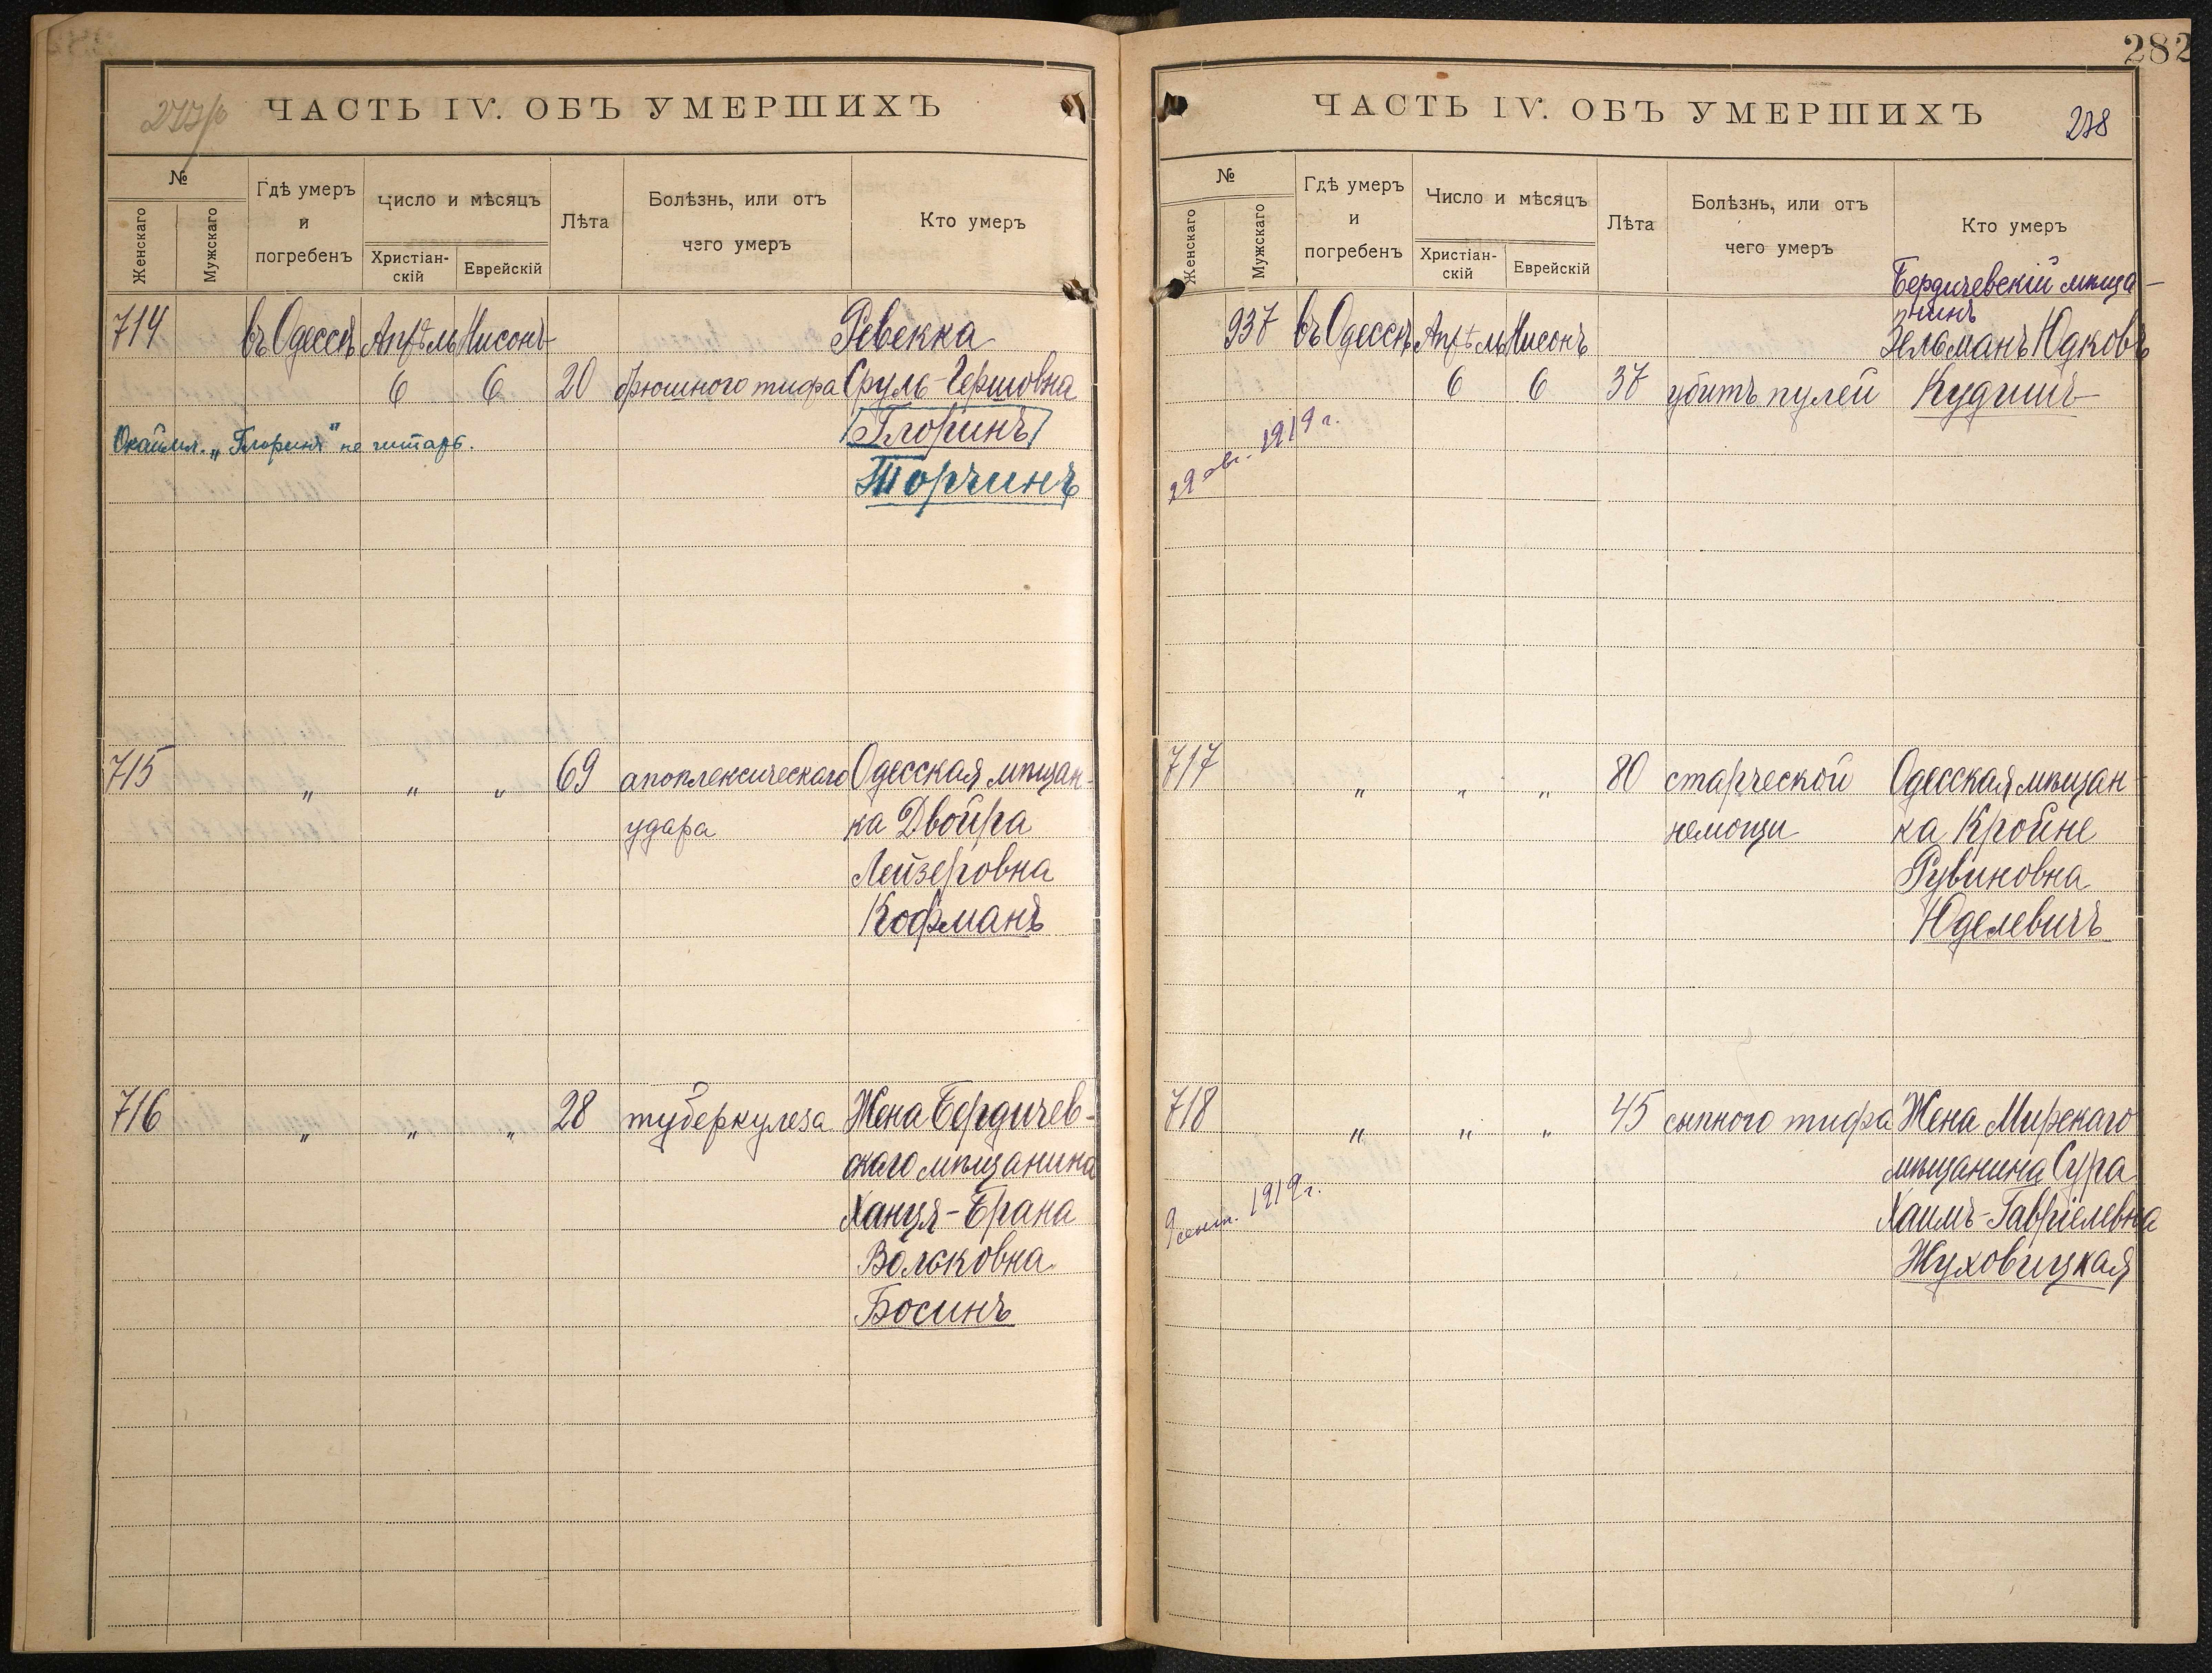 ЧАСТЬ IV. ОБЪ УМЕРШИХЪ
№
Женскаго
Мужскаго
Гдѣ умеръ
и
погребенъ
Число и мѣсяцъ
Христіан-
скій
Еврейскій
Лѣта
Болѣзнь, или отъ
чего умеръ
Кто умеръ
714 въ Одессѣ Апрѣль Нисонъ Ревекка
6 6 20 брюшного тифа Сруль-Гершовна
Глоринъ
Окаймл. „Глоринъ" не читать.
Торчинъ
715 „ „ „ 69 апоплексическаго Одесская мѣщан-
удара ка Двойра
Лейзеровна
Кофманъ
716 „ „ „ 28 туберкулеза Жена Бердичев-
скаго мѣщанина
Ханця-Брана
Вольковна
Босинъ
282
ЧАСТЬ IV. ОБЪ УМЕРШИХЪ
278
№
Женскаго
Мужскаго
Гдѣ умеръ
и
погребенъ
Число и мѣсяцъ
Христіан-
скій
Еврейскій
Лѣта
Болѣзнь, или отъ
чего умеръ
Кто умеръ
Бердичевскій мѣща-
нинъ
937 въ Одессѣ Апрѣль Нисонъ Зельманъ Юдковъ
6 6 37 убитъ пулей Кудишъ
29 авг. 1919 г.
717 „ „ „ 80 старческой Одесская мѣщан-
немощи ка Кройне
Рувиновна
Юделевичъ
718 „ „ „ 45 сыпного тифа Жена Мирскаго
мѣщанина Сура
Хаимъ-Гавріелевна
9 сент. 1919 г.
Жуховицкая